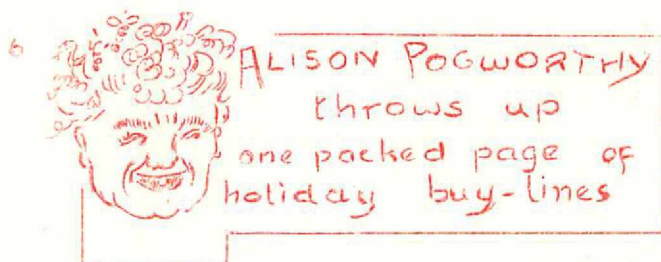 6
ALISON POGWORTHY
throws up
one packed page of
holiday buy-lines